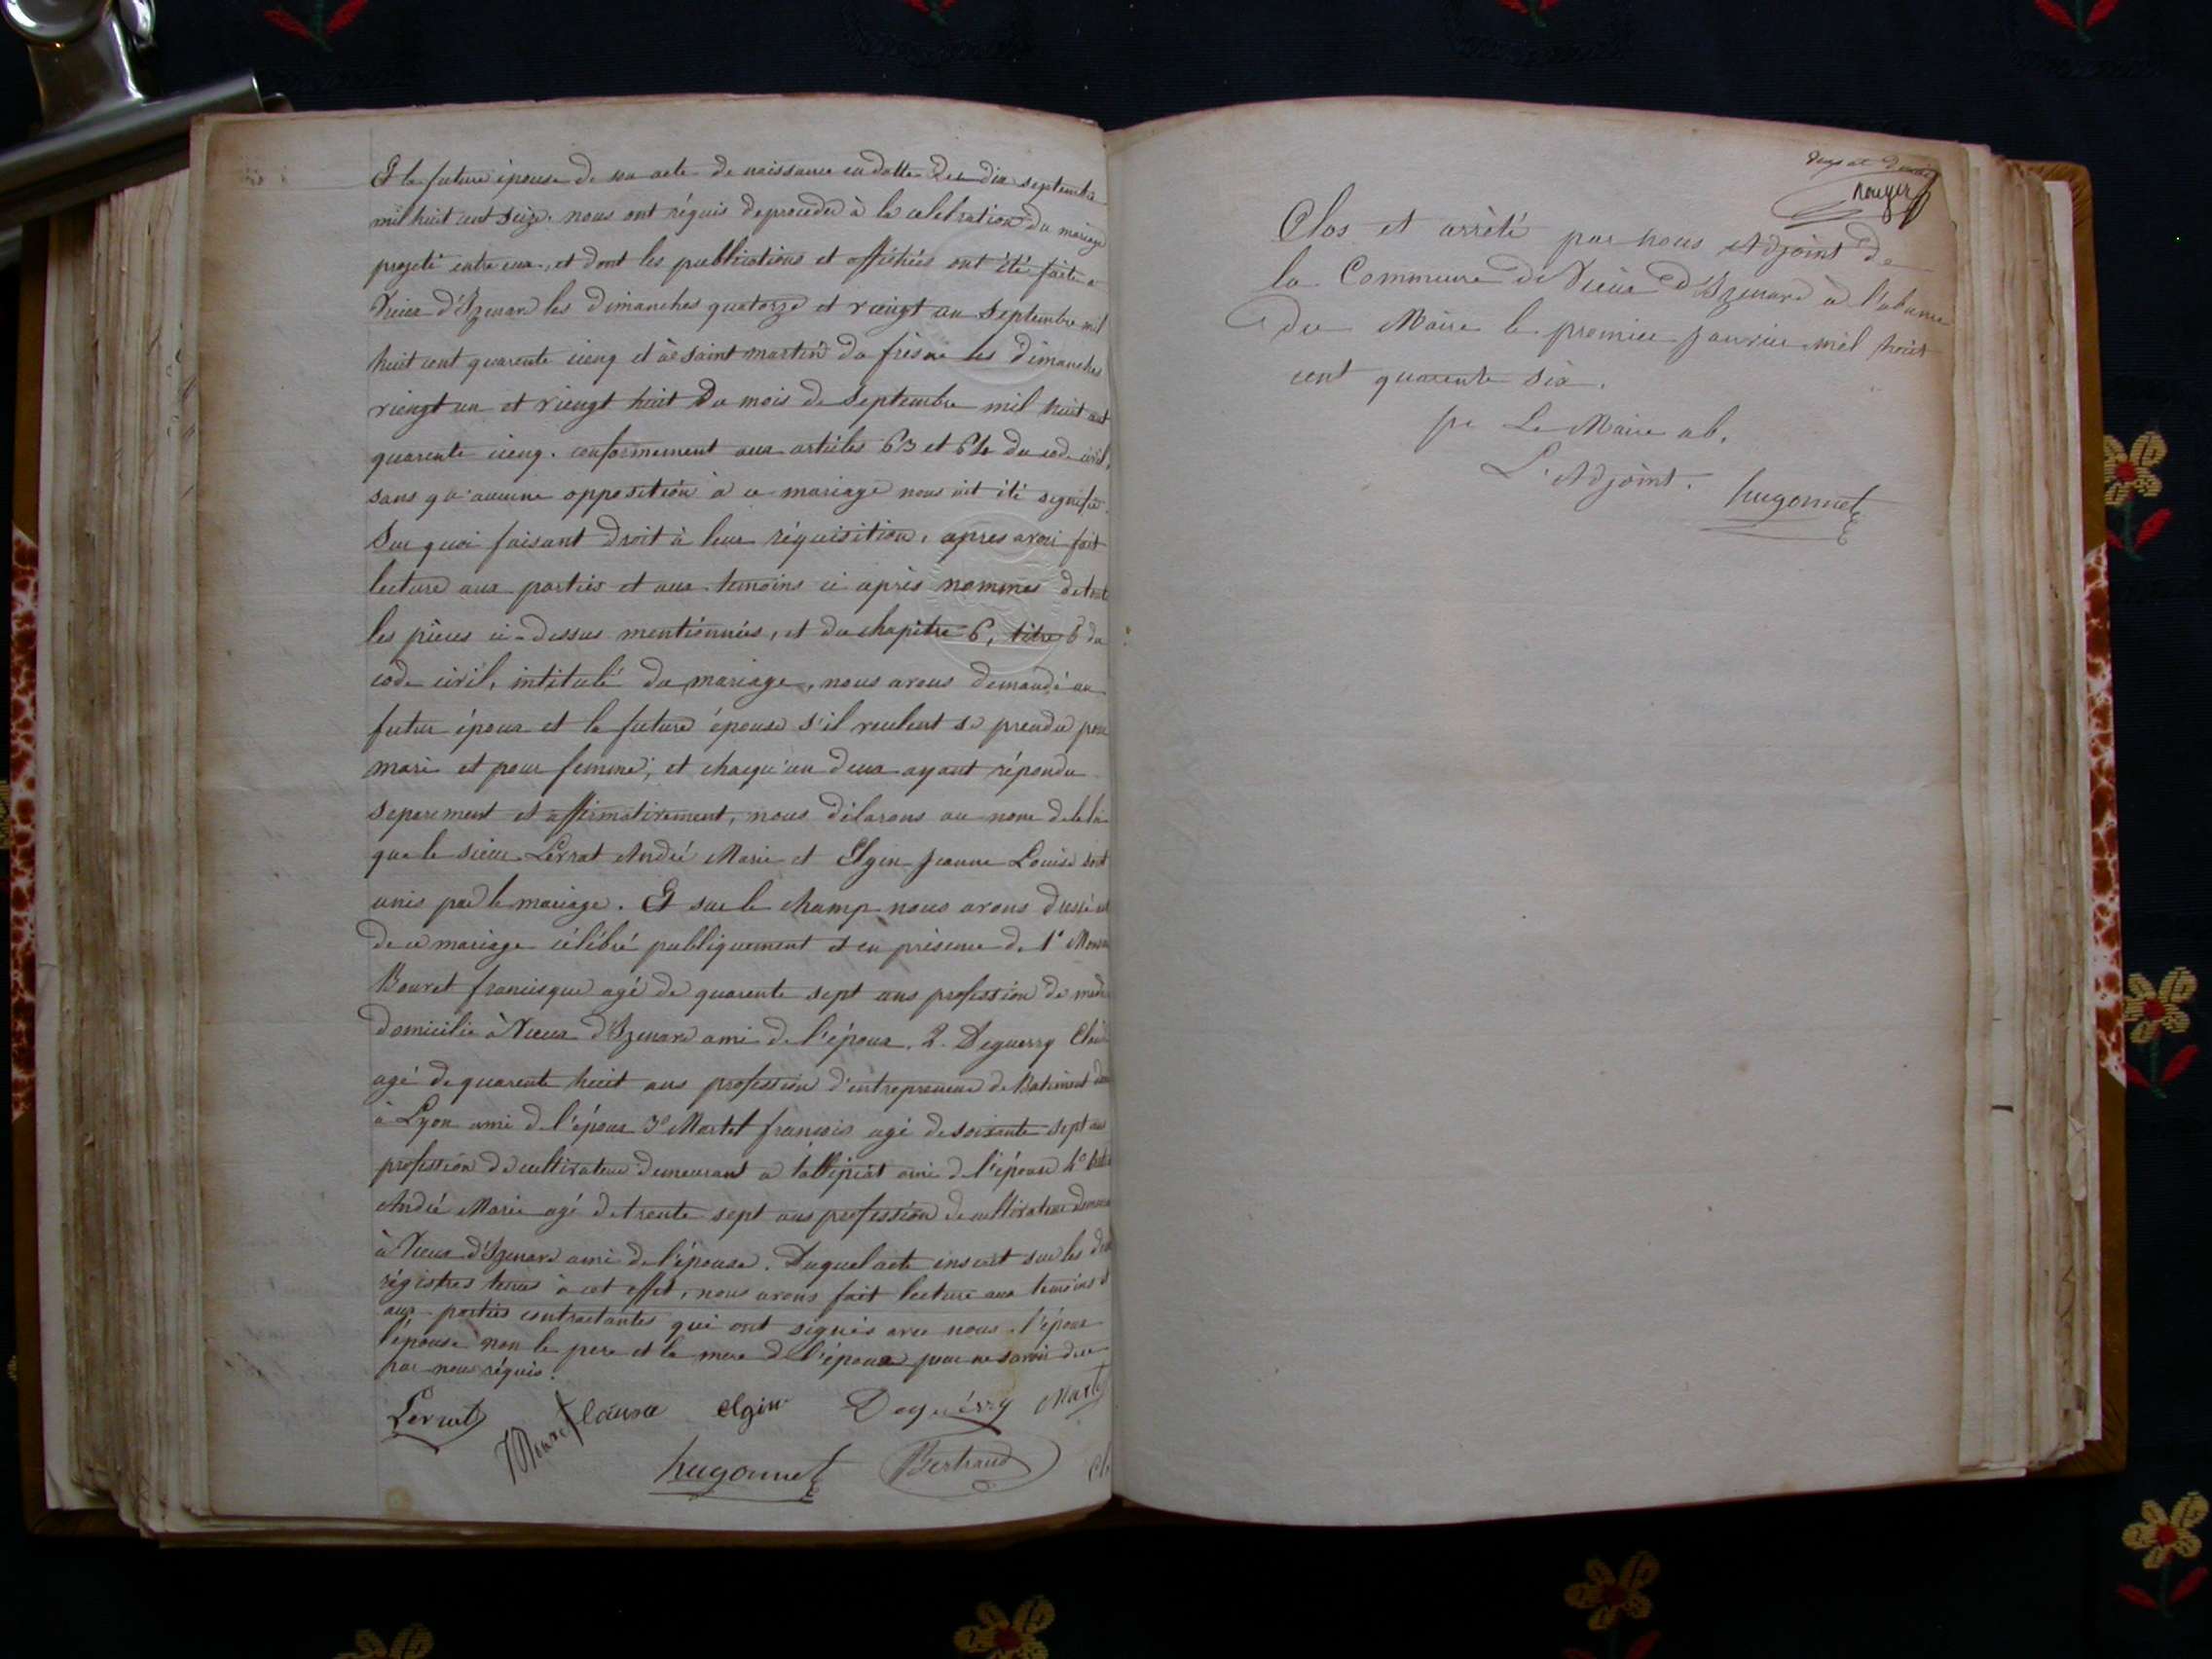 Et la future épouse de son acte de naissance en datte du dix septembre
mil huit cent seize. nous ont réquis de proceder à la celebration du mariage
projeté entre eux, et dont les publications et affichées ont été faite a
Vieux d'Izenave les dimanches quatorze et vingt un Septembre mil
huit cent quarente cienq et à saint martin du frêsne les dimanches
viengt un et viengt huit du mois de Septembre mil huit cent
quarente cienq. conformement aux articles 63 et 64 du code civil,
sans qu'aucune opposition à ce mariage nous ait été signifié.
Sur quoi faisant droit à leur réquisition, apres avoir fait
lecture aux parties et aux temoins ci après nommés de toute
les pièces ci-dessus mentionnées, et du chapitre 6, titre 5 du
code civil, intitulé du mariage, nous avons demandé au
futur époux et la future épouse s'il veulent se prendre pour
mari et pour femme, et chacqu'un deux ayant répondu
separement et affirmativement, nous délarons au nom de la loi
que le sieur Lerrat André Marie et Elgin Jeanne Louise sont
unis par le mariage. Et sur le champ nous avons dressé
de ce mariage célébré publiquement et en présence de 1°
Bouret francisque agé de quarente sept ans profession de
domicilié à Vieux d'Izenave ami de l'époux. 2. Deguerry
agé de quarente huit ans profession d'entrepreneur de Batiment
à Lyon ami de l'époux 3° Martel francois agé de soixante sept ans
profession de cultivateur demeurant a tallipiat ami de l'épouse 4°
André Marie agé de trente sept ans profession de cultivateur
à Vieux d'Izenave ami de l'épouse. Duquel acte inscrit sur les
régistres tenus à cet effet, nous avons fait lecture aux temoins et
aux parties contractantes qui ont signés avec nous. l'époux
l'épouse non le pere et la mere de l'époux pour ne savoir de ce
par nous réquis.
Lerrat louise elgin Deguerry
hugonnet Bertrand
rouyer
Clos et arrèté par nous Adjoint de
la Commune de Vieux d'Izenave à l'absence
du Maire le premier janvier mil huit
cent quarente six.
pr Le Maire ab.
L'Adjoint. hugonnet